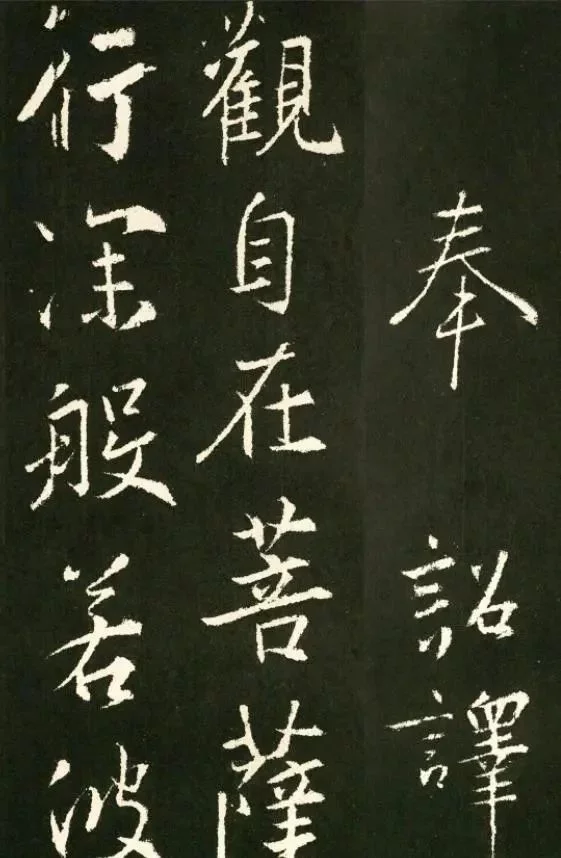 奉詔譯
觀自在菩薩
行深般若波